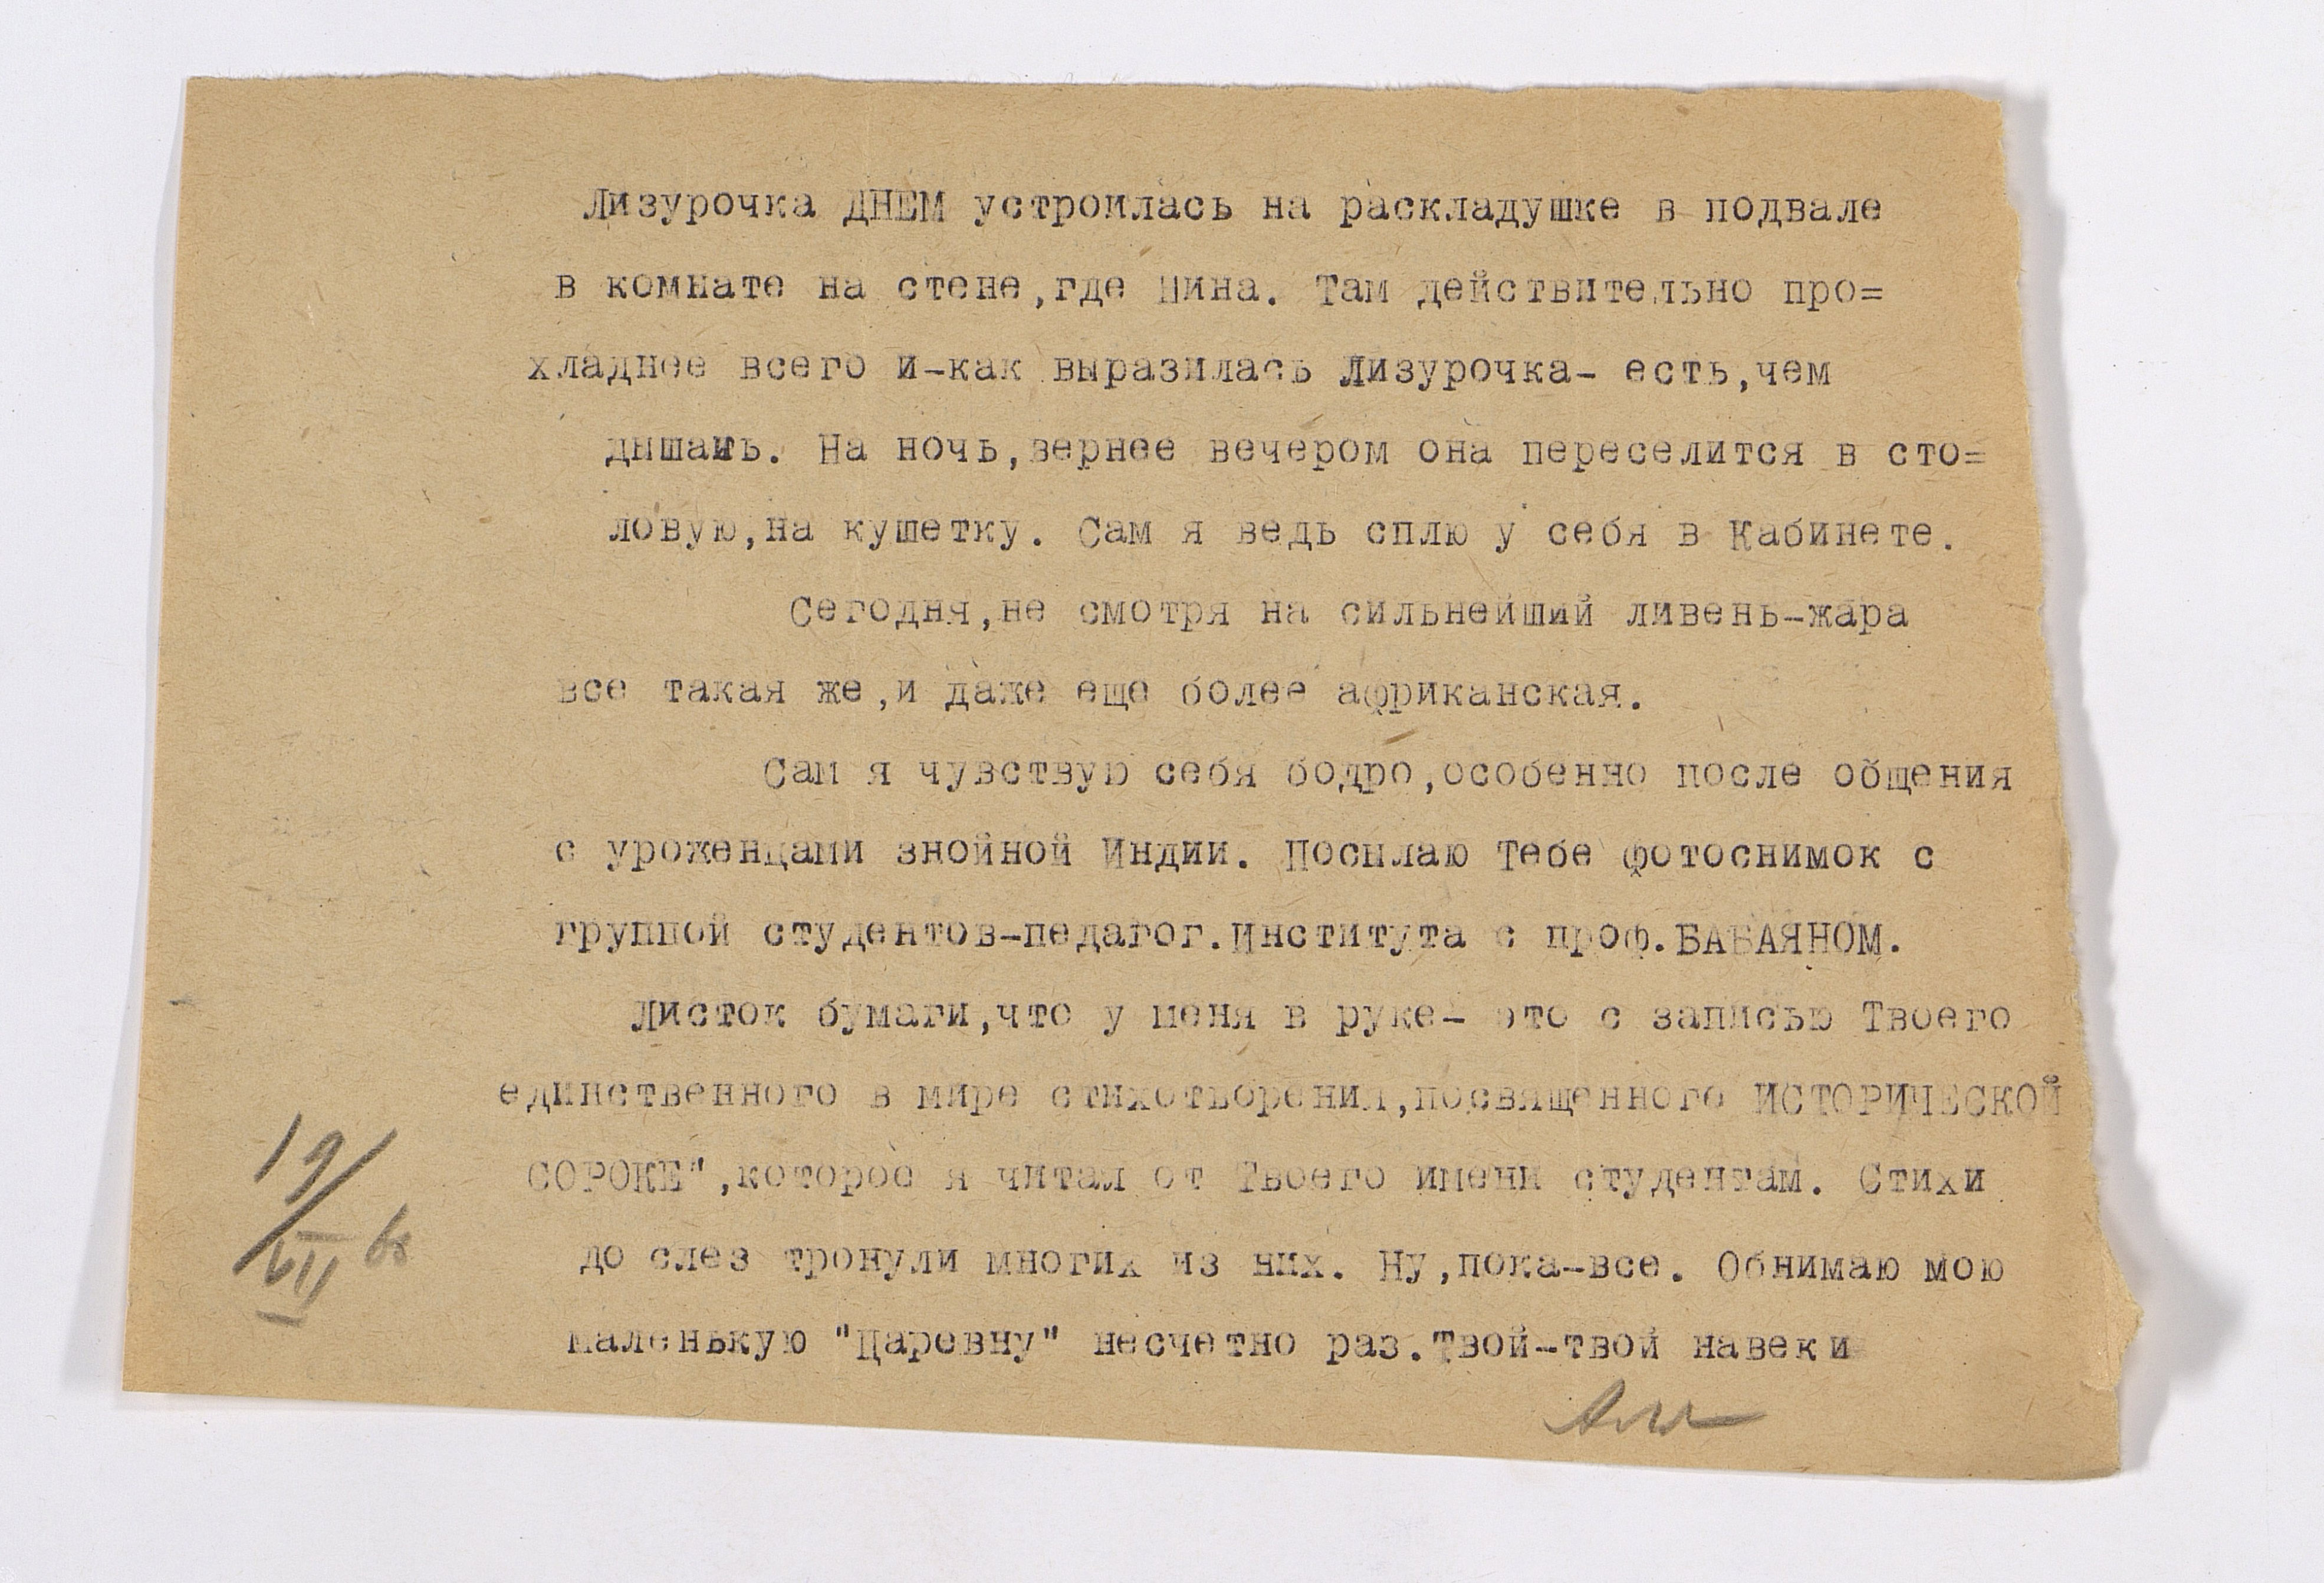 Лизурочка ДНЕМ устроилась на раскладушке в подвале
в комнате на стене,где Шина. Там действительно про=
хладнее всего и-как выразилась Лизурочка- есть,чем
дышать. На ночь,вернее вечером она переселится в сто=
ловую,на кушетку. Сам я ведь сплю у себя в Кабинете.
Сегодня,не смотря на сильнейший ливень-жара
все такая же,и даже еще более африканская.
Сам я чувствую себя бодро,особенно после общения
с уроженцами знойной Индии. Посылаю Тебе фотоснимок с
группой студентов-педагог.Института с проф.БАБАЯНОМ.
Листок бумаги,что у меня в руке- это с записью Твоего
единственного в мире стихотворения,посвященного ИСТОРИЧЕСКОЙ
СОРОКЕ",которое я читал от Твоего имени студентам. Стихи
до слез тронули многих из них. Ну,пока-все. Обнимаю мою
маленькую "Царевну" несчетно раз.Твой-твой навеки
19/VII